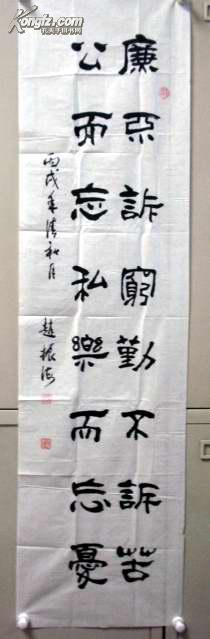 廉不訴窮勤不訴苦
公而忘私樂而忘憂
丙戌年清和月
趙振海
Kongfz.com
孔夫子旧书网